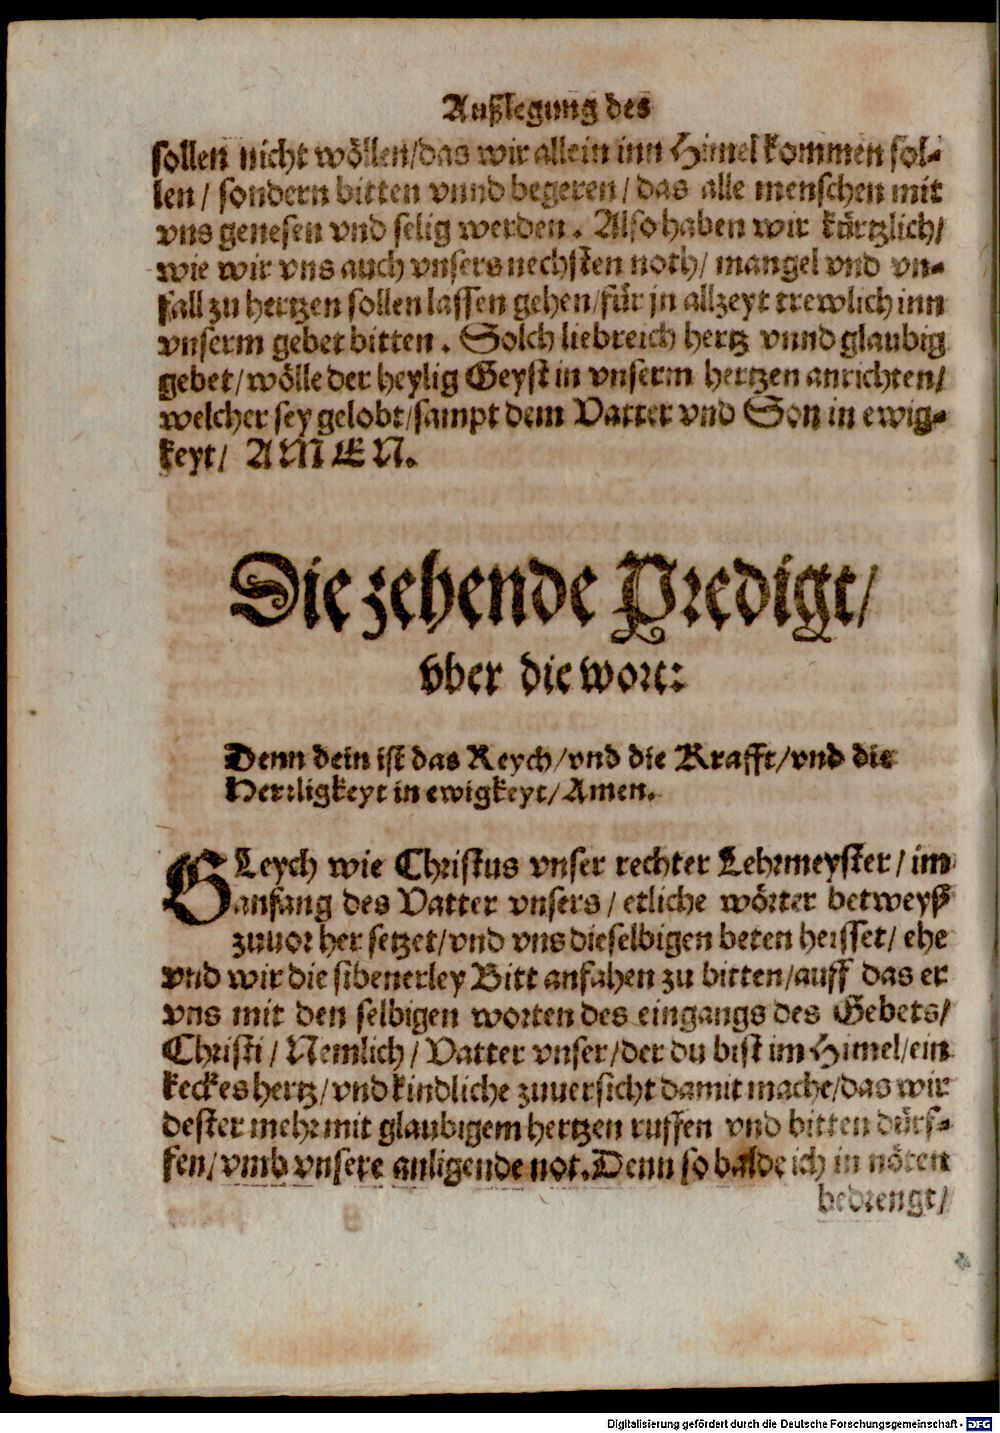 Außlegung des
sollen nicht wöllen/das wir allein inn Himel kommen sol-
len/ sondern bitten vnnd begeren/ das alle menschen mit
vns genesen vnd selig werden. Also haben wir kürtzlich/
wie wir vns auch vnsers nechsten noth/ mangel vnd vn-
fall zu hertzen sollen lassen gehen/für jn allzeyt trewlich inn
vnserm gebet bitten. Solch liebreich hertz vnnd glaubig
gebet/wölle der heylig Geyst in vnserm hertzen anrichten/
welcher sey gelobt/sampt dem Vatter vnd Son in ewig-
keyt/ AMEN.
Die zehende Predigt/
vber die wort:
Denn dein ist das Reych/vnd die Krafft/vnd die
Herrligkeyt in ewigkeyt/Amen.
GLeych wie Christus vnser rechter Lehrmeyster/im
anfang des Vatter vnsers/etliche wörter betweyß
zuuor her setzet/vnd vns dieselbigen beten heisset/ ehe
vnd wir die sibenerley Bitt anfahen zu bitten/auff das er
vns mit den selbigen worten des eingangs des Gebets/
Christi/Nemlich/Vatter vnser/der du bist im Himel/ein
keckes hertz/vnd kindliche zuuersicht damit mache/das wir
dester mehr mit glaubigem hertzen ruffen vnd bitten dürf-
fen/vmb vnsere anligende not. Denn so balde ich in nöten
bedrengt/
Digitalisierung gefördert durch die Deutsche Forschungsgemeinschaft - DFG